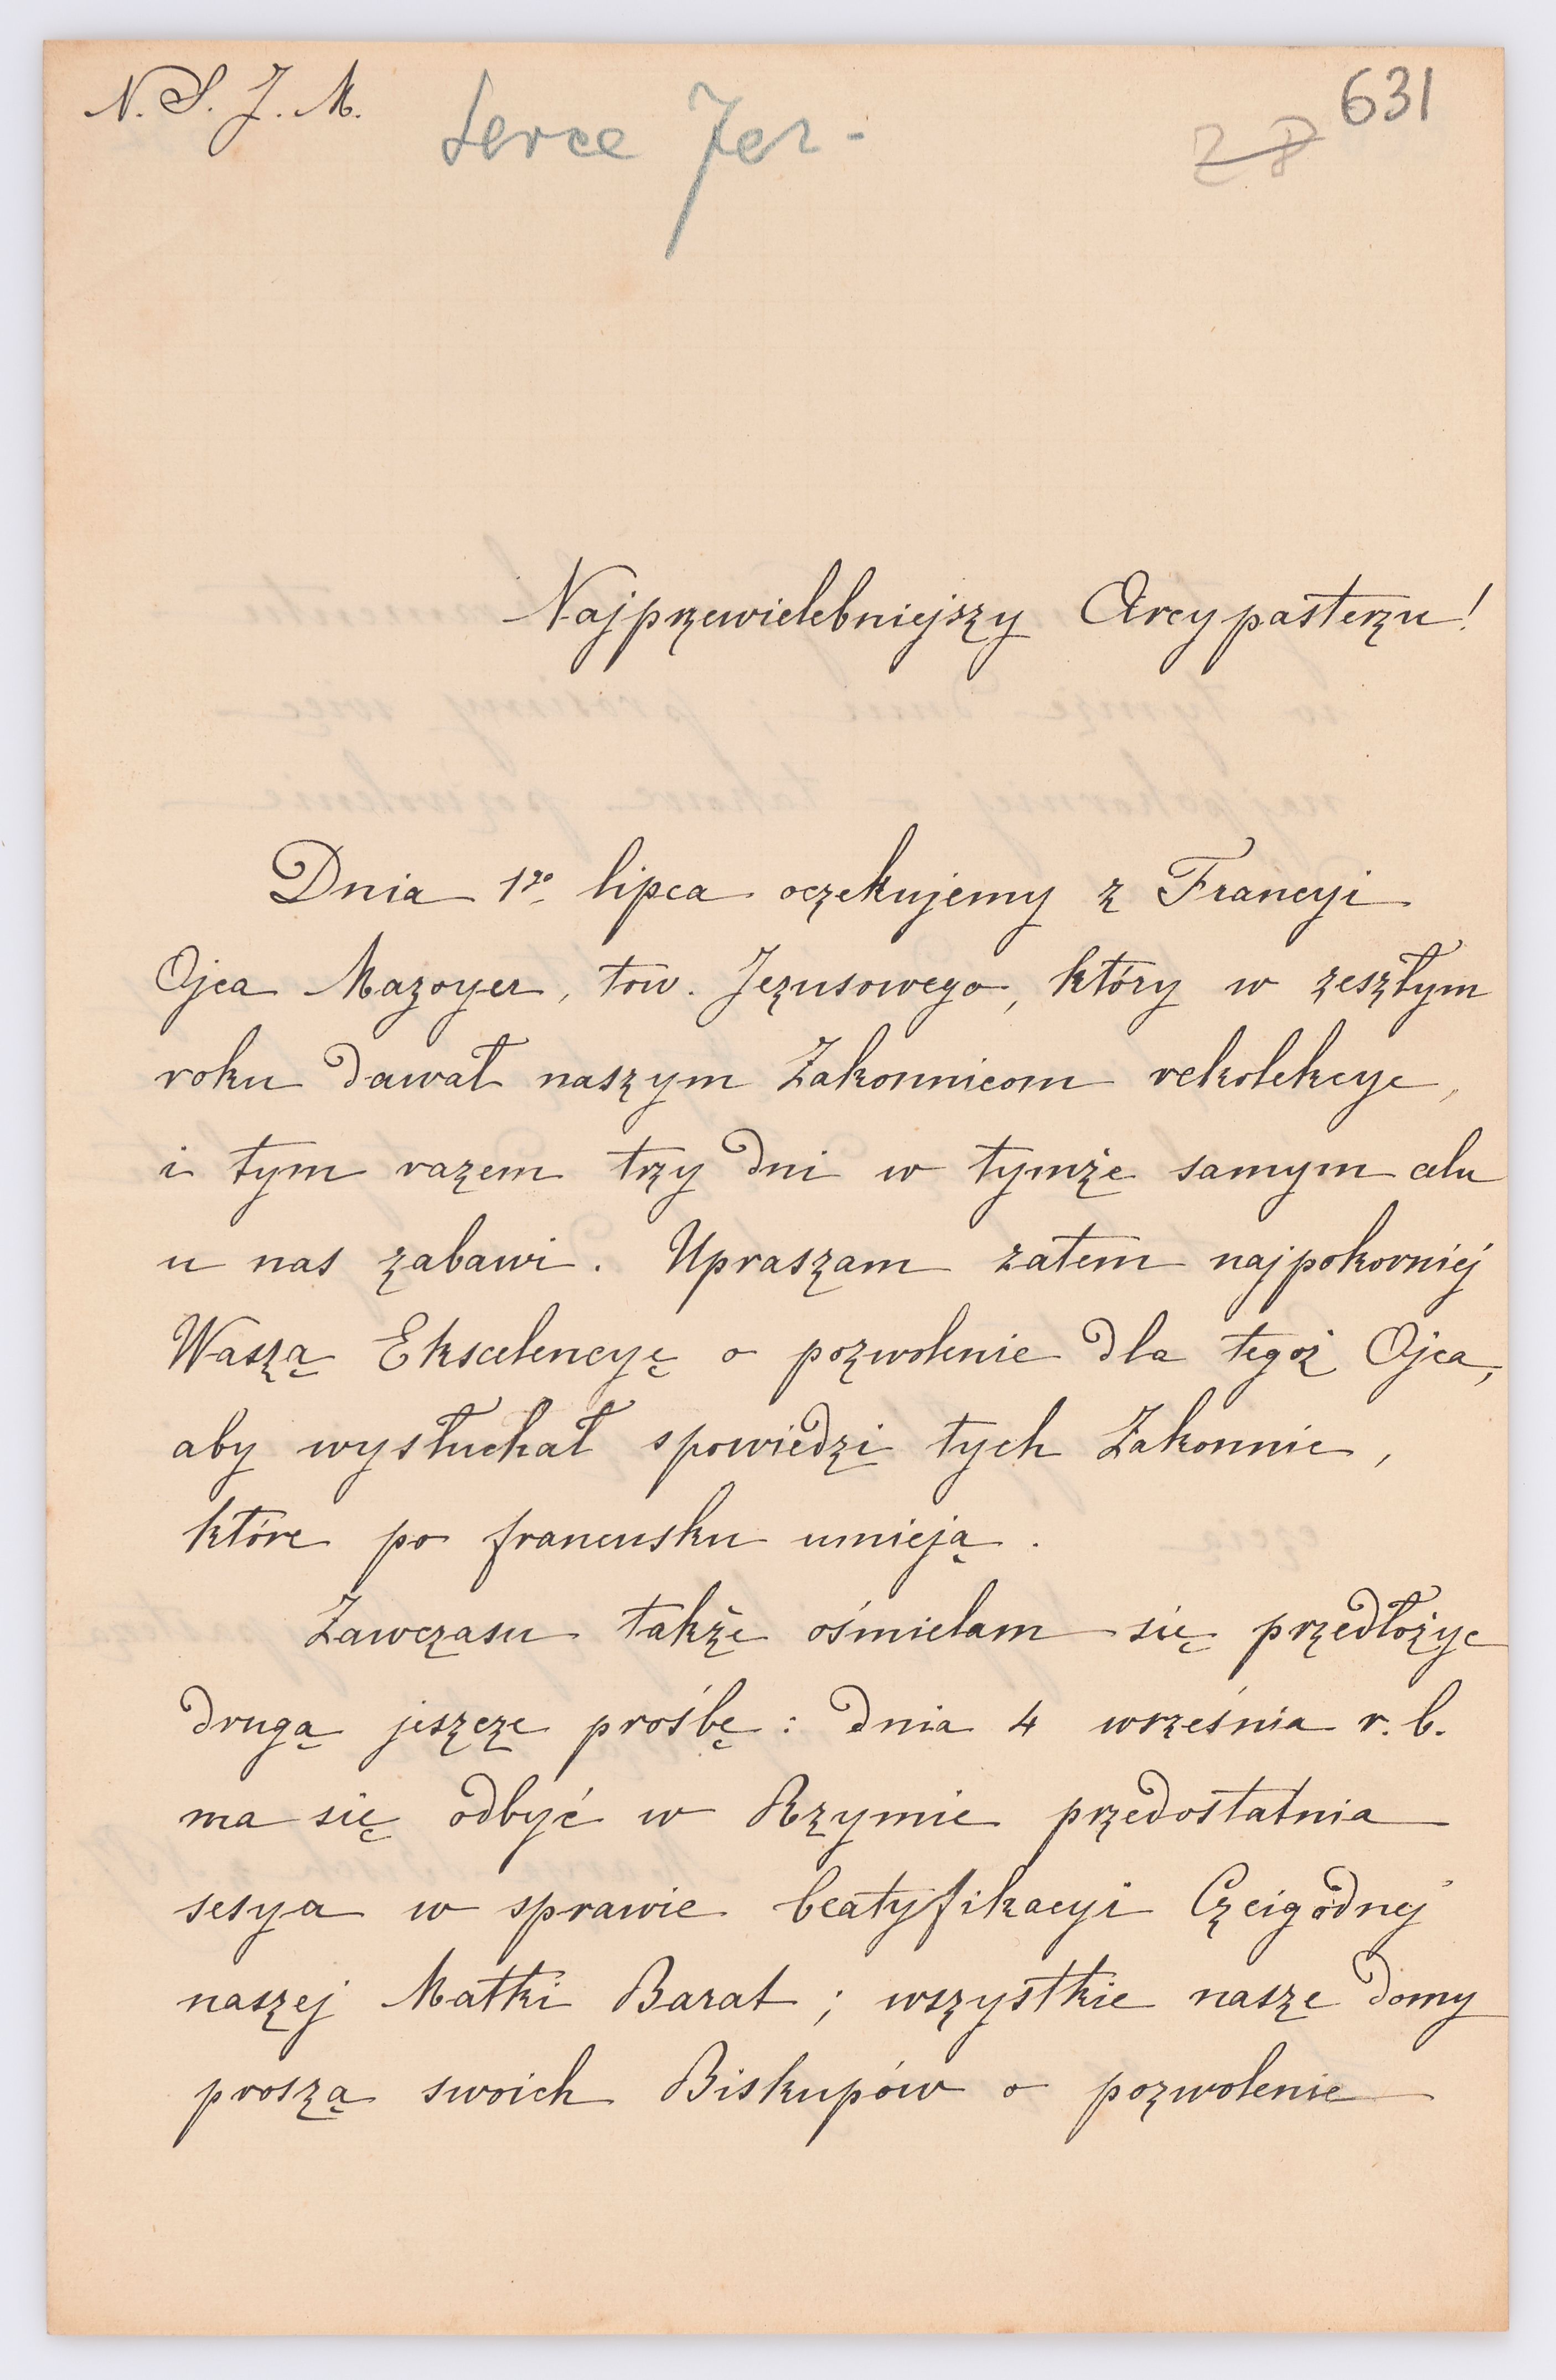 N. S. J. M.
Serce Jez-
631
28
Najprzewielebniejszy Arcypasterzu!
Dnia 1go lipca oczekujemy z Francyi
Ojca Mazoyer, tow. Jezusowego, który w zeszłym
roku dawał naszym Zakonnicom rekolekcye,
i tym razem trzy dni w tymże samym celu
u nas zabawi. Upraszam zatem najpokorniej
Waszą Ekscelencyę o pozwolenie dla tegoż Ojca,
aby wysłuchał spowiedzi tych Zakonnic,
które po francusku umieją.
Zawczasu także ośmielam się przedłożyc
drugą jeszcze prośbę: dnia 4 września r. b.
ma się odbyć w Rzymie przedostatnia
sesya w sprawie beatyfikacyi Czcigodnej
naszej Matki Barat; wszystkie nasze domy
proszą swoich Biskupów o pozwolenie